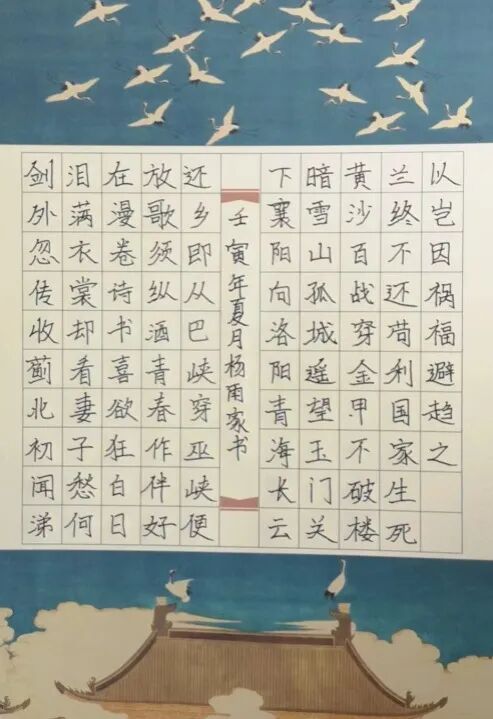 剑外忽传收蓟北初闻涕
泪满衣裳却看妻子愁何
在漫卷诗书喜欲狂白日
放歌须纵酒青春作伴好
还乡即从巴峡穿巫峡便
壬寅年夏月杨雨家书
下襄阳向洛阳青海长云
暗雪山孤城遥望玉门关
黄沙百战穿金甲不破楼
兰终不还苟利国家生死
以岂因祸福避趋之